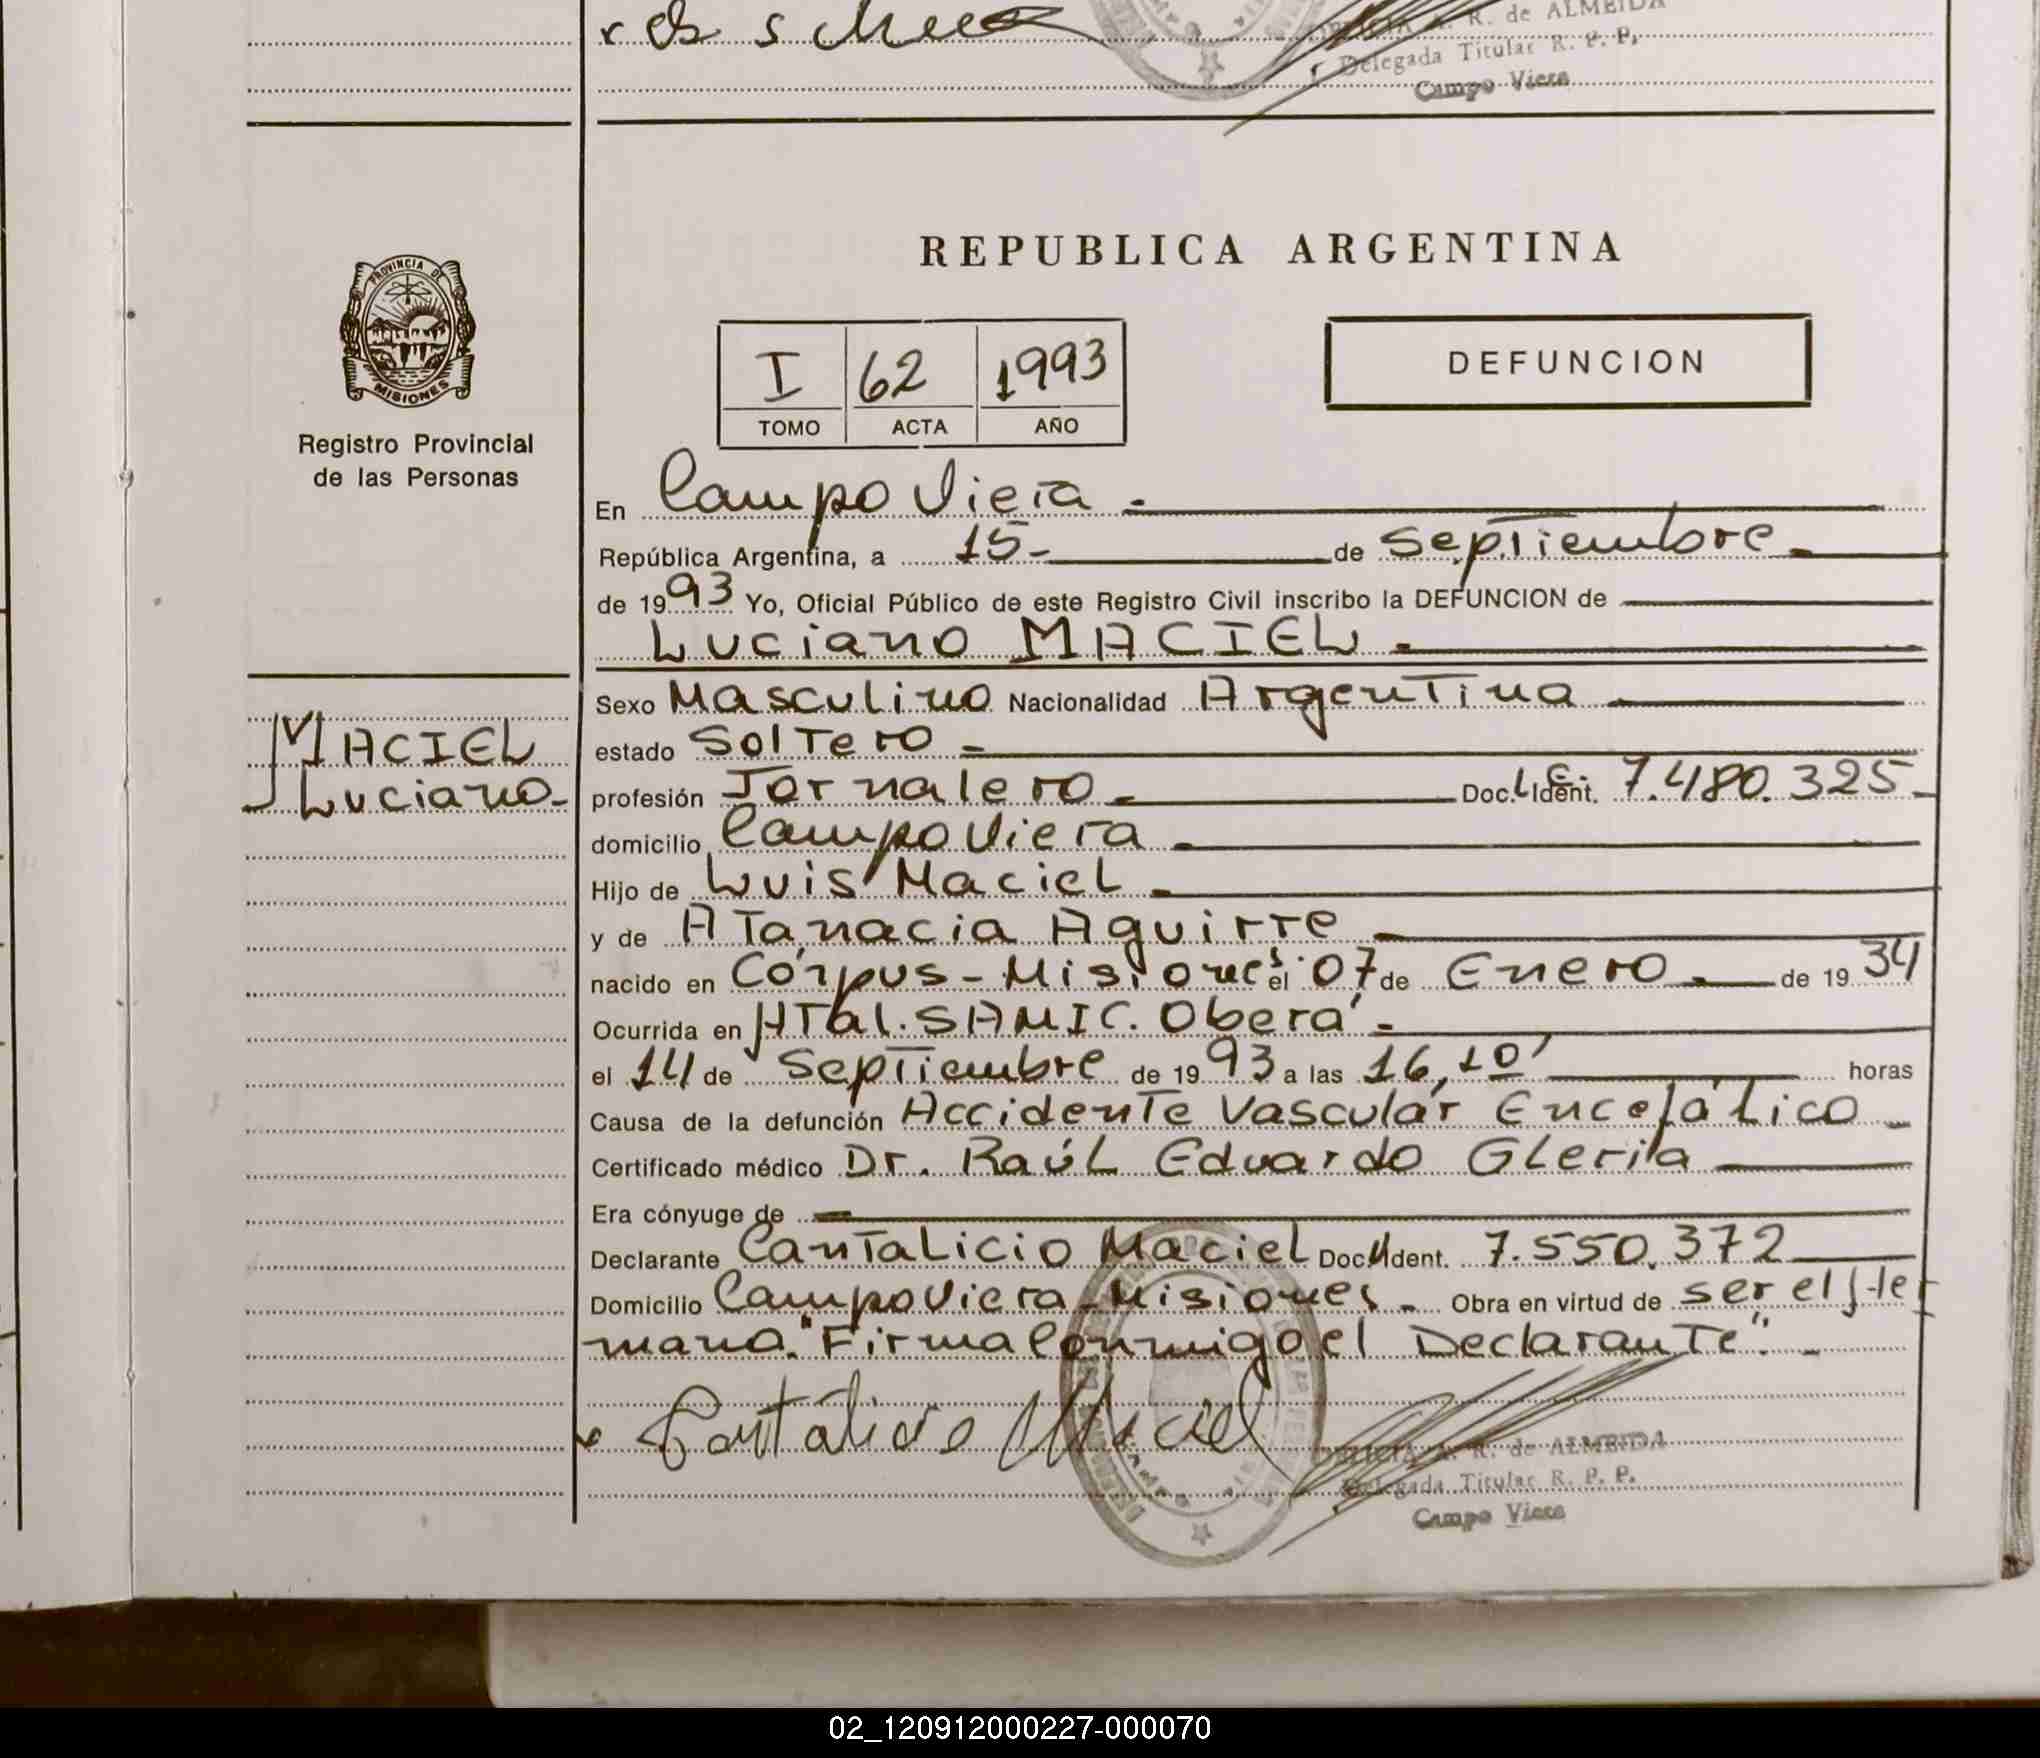 R. de ALMEIDA
Delegada Titular R. P. P.
Campo Viera
PROVINCIA DE
MISIONES
Registro Provincial
de las Personas
REPUBLICA ARGENTINA
I 62 1993
TOMO ACTA AÑO
DEFUNCION
En Campo Viera -
República Argentina, a 15- de Septiembre -
de 1993 Yo, Oficial Público de este Registro Civil inscribo la DEFUNCION de
Luciano MACIEL -
MACIEL
Luciano-
Sexo Masculino Nacionalidad Argentina
estado Soltero -
profesión Jornalero - Doc. L.E. Ident. 7.480.325-
domicilio Campo Viera -
Hijo de Luis Maciel -
y de Atanacia Aguirre -
nacido en Córpus - Misiones el 07 de Enero - de 1934
Ocurrida en HTal. SAMIC. Oberá -
el 14 de Septiembre de 1993 a las 16,10' horas
Causa de la defunción Accidente Vascular Encefálico -
Certificado médico Dr. Raúl Eduardo Glerila
Era cónyuge de -
Declarante Cantalicio Maciel Doc. Ident. 7.550.372
Domicilio Campo Viera - Misiones - Obra en virtud de ser el Her
mano. "Firma Conmigo el Declarante". -
Cantalicio Maciel
A. R. de ALMEIDA
Delegada Titular R. P. P.
Campo Viera
02_120912000227-000070